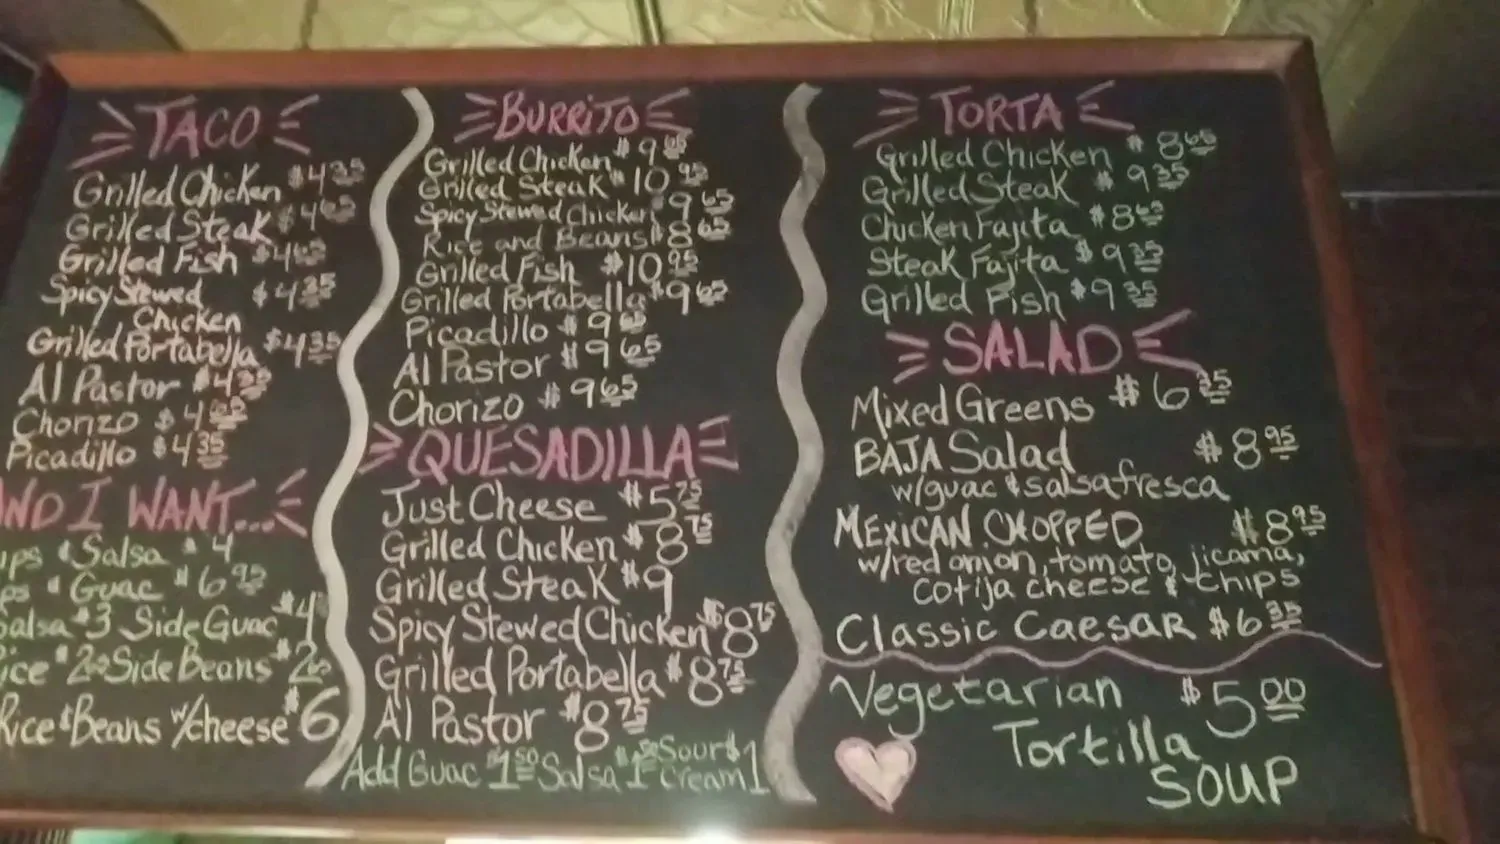 TACO
Grilled Chicken $4.35
Grilled Steak $4.65
Grilled Fish $4.65
Spicy Stewed $4.35
Chicken
Grilled Portabella $4.35
Al Pastor $4.35
Chorizo $4.65
Picadillo $4.35
ND I WANT...
ips & Salsa $4
ps & Guac $6.95
Salsa $3 Side Guac $4
ice $2.00 Side Beans $2
Rice & Beans w/cheese $6
BURRITO
Grilled Chicken $9.65
Grilled Steak $10.95
Spicy Stewed Chicken $9.65
Rice and Beans $8.65
Grilled Fish $10.95
Grilled Portabella $9.65
Picadillo $9.65
Al Pastor $9.65
Chorizo $9.65
QUESADILLA
Just Cheese $5.75
Grilled Chicken $8.75
Grilled Steak $9
Spicy Stewed Chicken $8.75
Grilled Portabella $8.75
Al Pastor $8.75
Add Guac $1.50 Salsa $1.50 Sour Cream $1
TORTA
Grilled Chicken $8.65
Grilled Steak $9.35
Chicken Fajita $8.65
Steak Fajita $9.35
Grilled Fish $9.35
SALAD
Mixed Greens $6.35
BAJA Salad $8.95
w/guac & salsa fresca
MEXICAN CHOPPED $8.95
w/red onion, tomato, jicama,
cotija cheese & chips
Classic Caesar $6.35
Vegetarian $5.00
Tortilla
SOUP